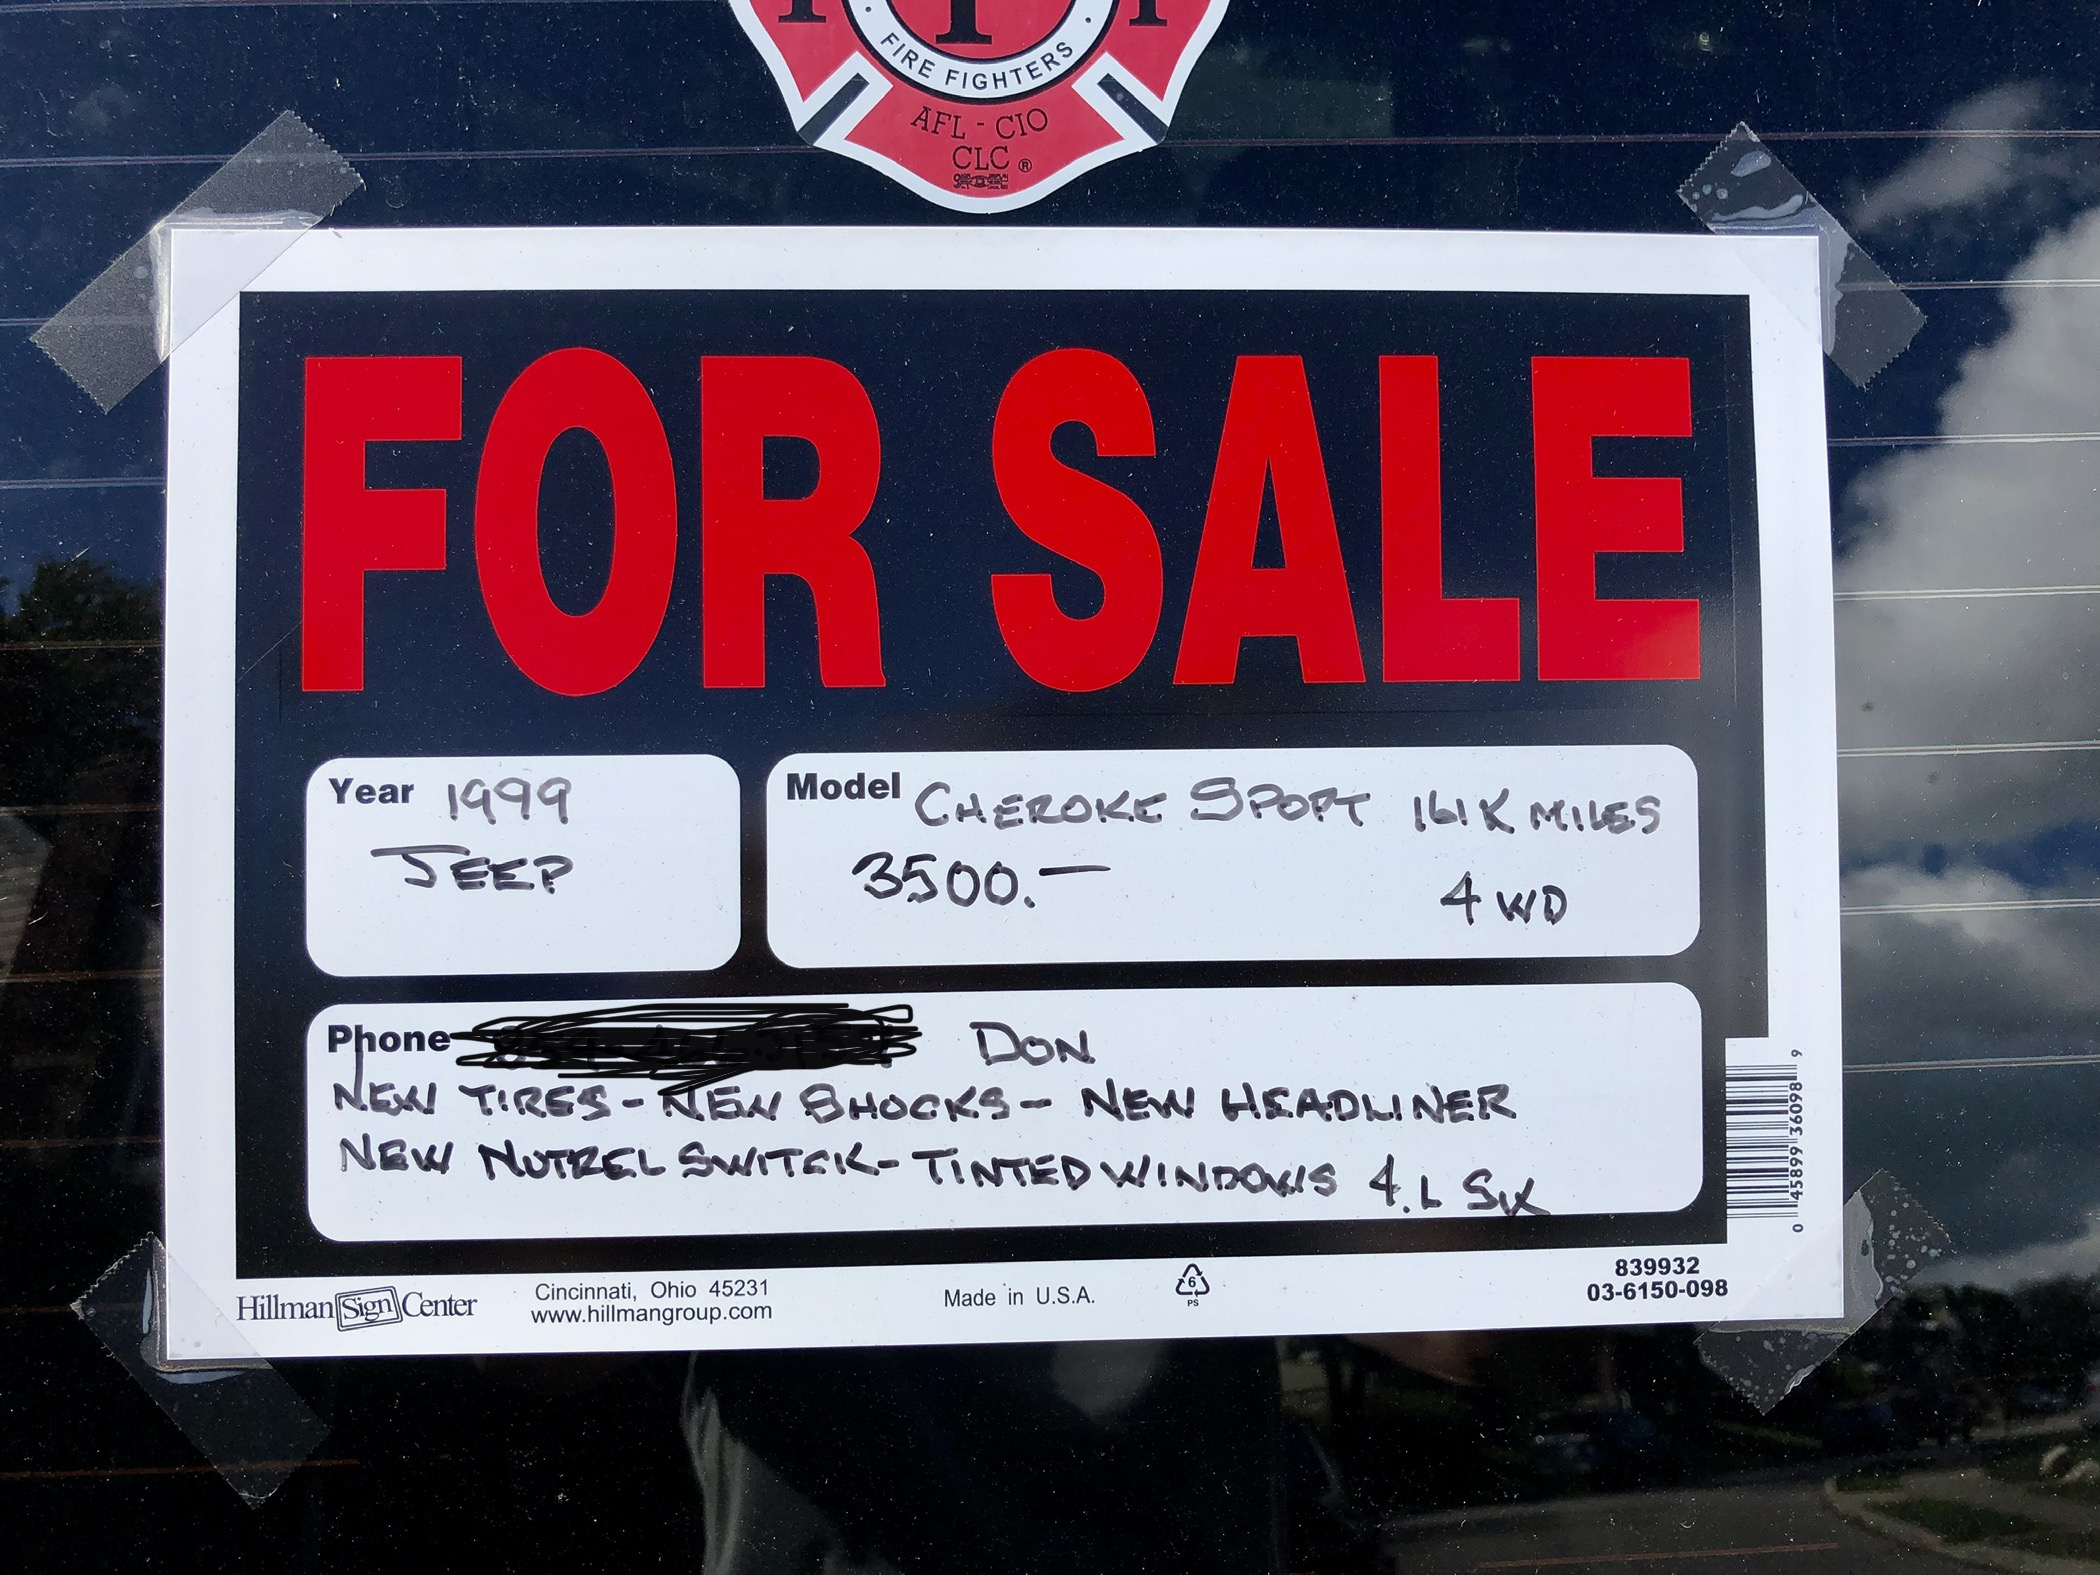 FIRE FIGHTERS
AFL - CIO
CLC ®
FOR SALE
Year 1999
JEEP
Model CHEROKE SPORT 161K MILES
3500.— 4WD
Phone DON
NEW TIRES - NEW SHOCKS - NEW HEADLINER
NEW NUTREL SWITCK - TINTED WINDOWS 4.L SIX
0 45899 36098 9
Hillman Sign Center
Cincinnati, Ohio 45231
www.hillmangroup.com
Made in U.S.A.
6
PS
839932
03-6150-098